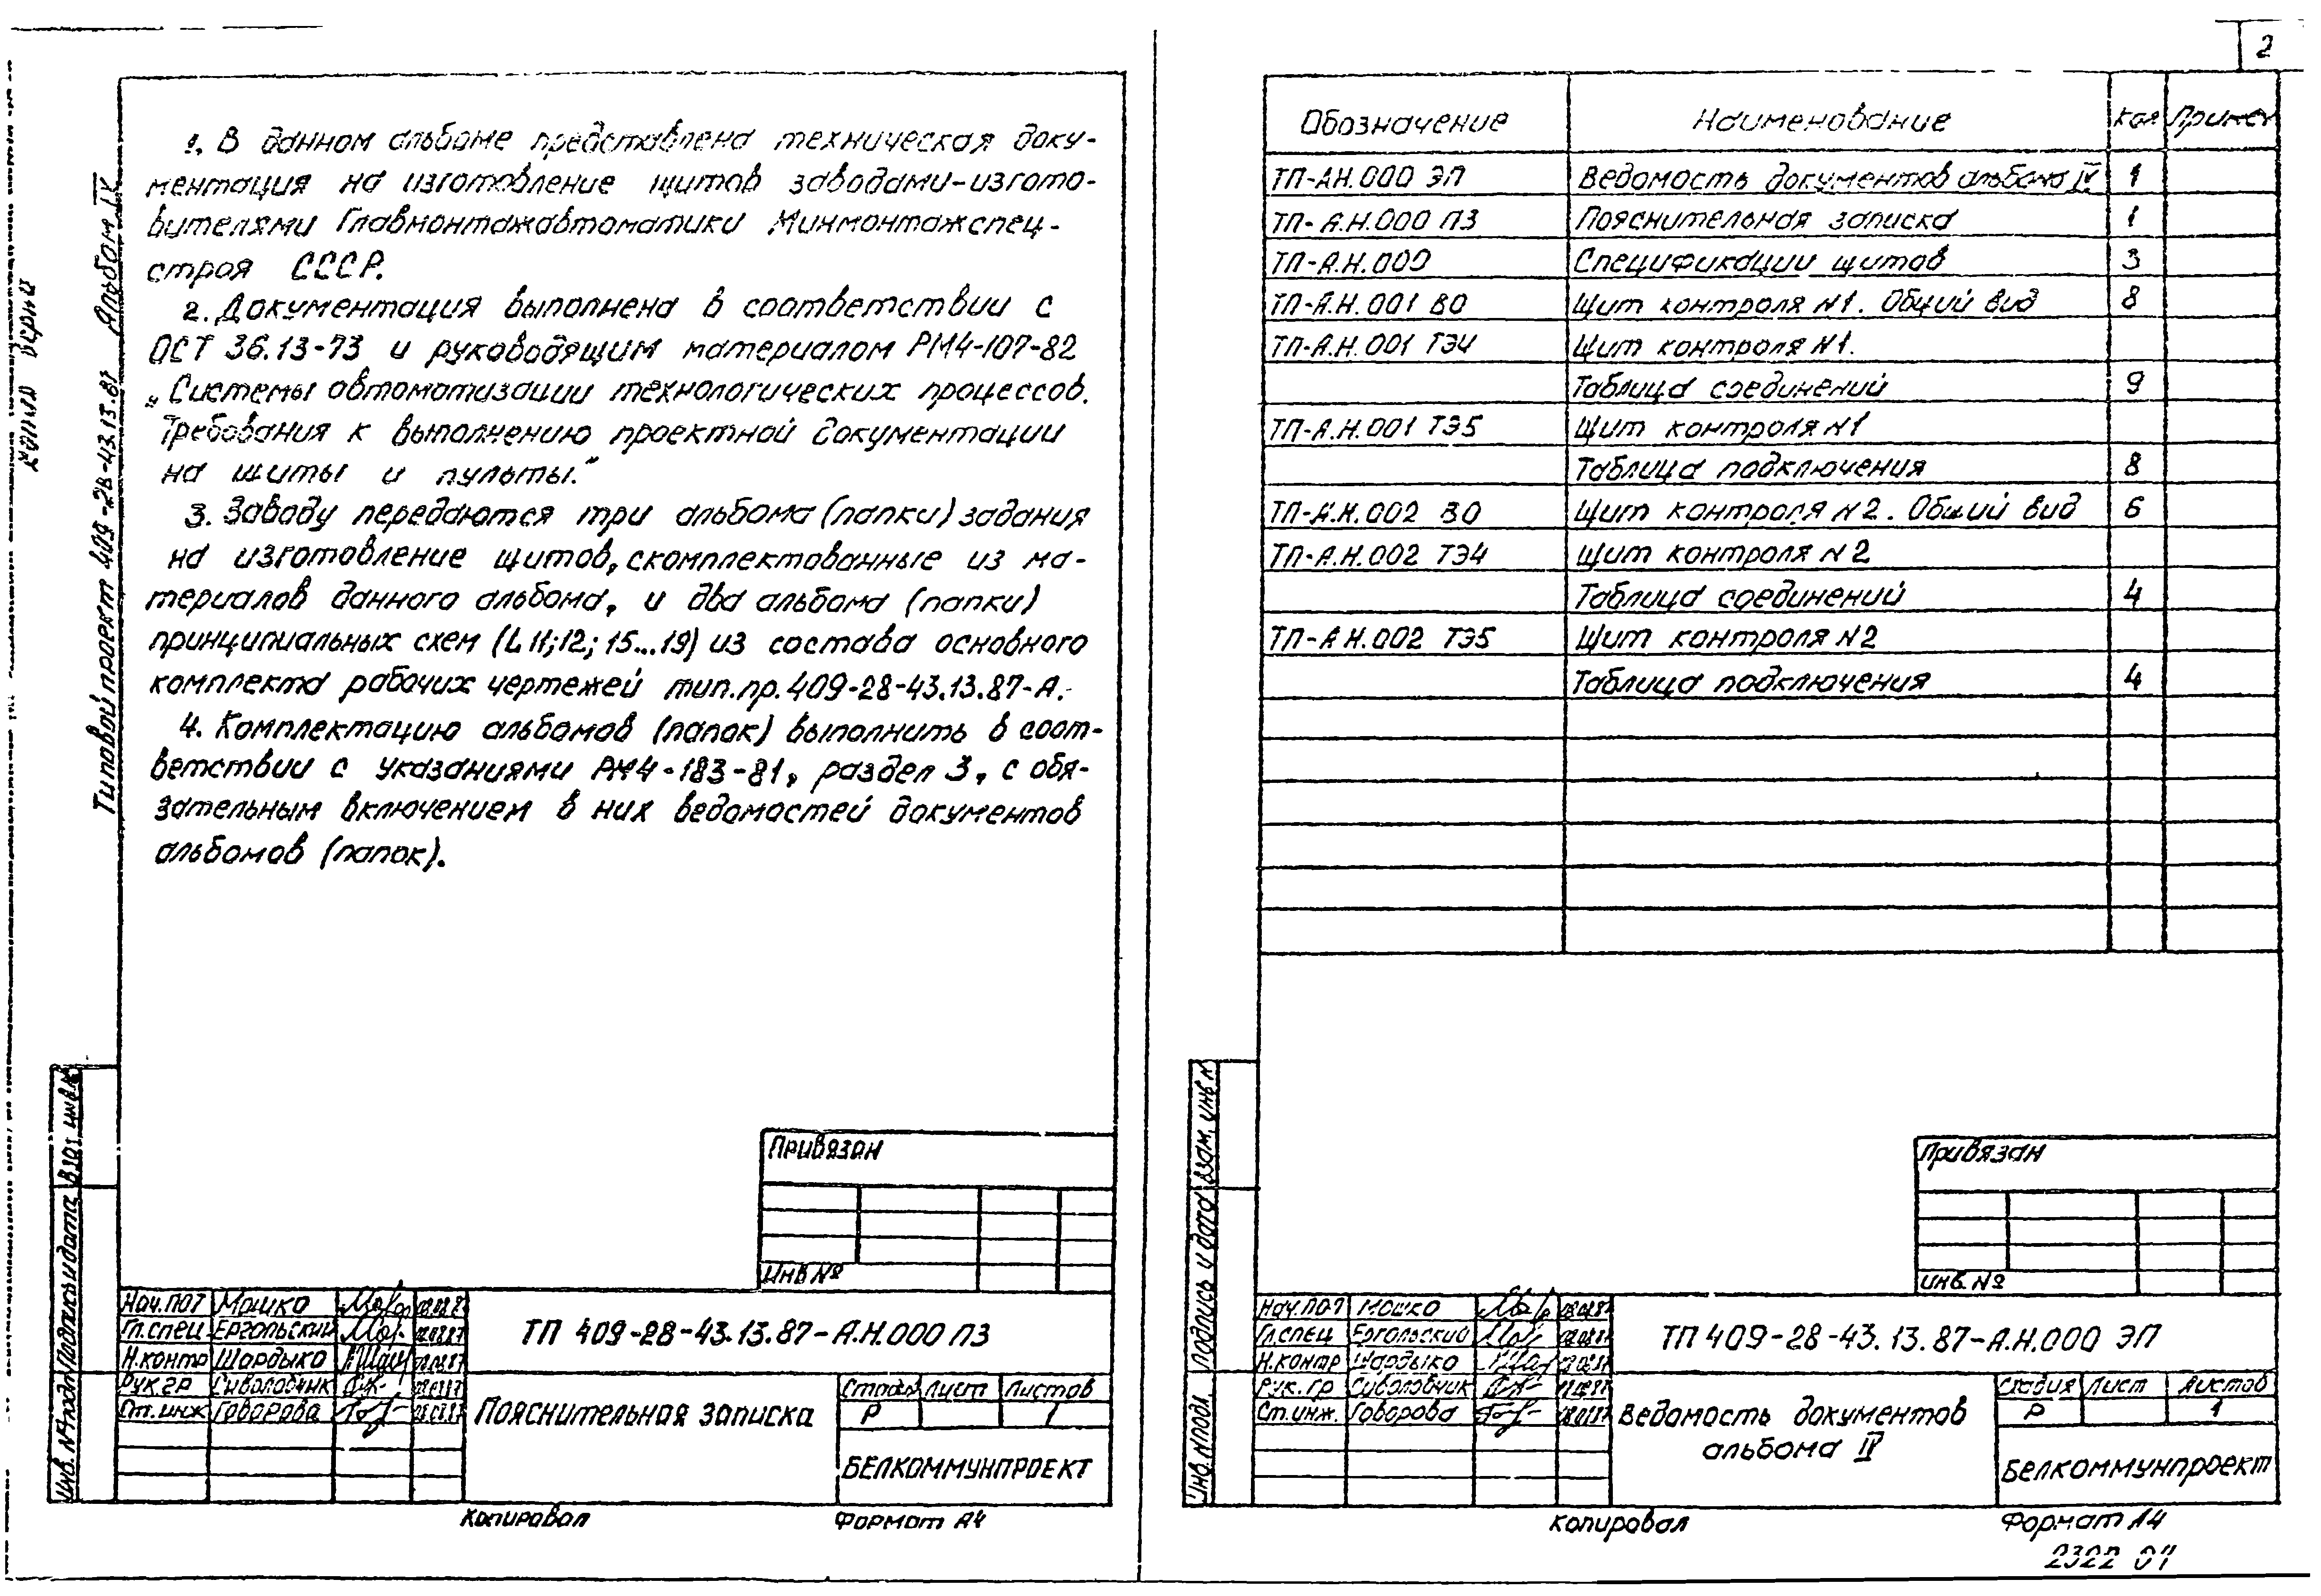 2
Типовой проект 409-28-43.13.87 Альбом IV
1. В данном альбоме представлена техническая доку-
ментация на изготовление щитов заводами-изгото-
вителями Главмонтажавтоматики Минмонтажспец-
строя СССР.
2. Документация выполнена в соответствии с
ОСТ 36.13-73 и руководящим материалом РМ4-107-82
„Системы автоматизации технологических процессов.
Требования к выполнению проектной документации
на щиты и пульты."
3. Заводу передаются три альбома (папки) задания
на изготовление щитов, скомплектованные из ма-
териалов данного альбома, и два альбома (папки)
принципиальных схем (L 11; 12; 15...19) из состава основного
комплекта рабочих чертежей тип.пр. 409-28-43.13.87-А.
4. Комплектацию альбомов (папок) выполнить в соот-
ветствии с указаниями РМ4-183-81, раздел 3, с обя-
зательным включением в них ведомостей документов
альбомов (папок).
Привязан
Инв №
Нач.ПОТ Мошко
Гл.спец Ергольский
Н.контр Шардыко
Рук.гр Сиволобчик
Ст.инж Говорова
ТП 409-28-43.13.87-А.Н.000 ПЗ
Пояснительная записка
Стадия Лист Листов
Р 1
БЕЛКОММУНПРОЕКТ
Инв. № подл Подпись и дата Взам инв.№
Копировал Формат А4
Обозначение Наименование Кол Примеч
ТП-А.Н.000 ЭП Ведомость документов альбома IV 1
ТП-А.Н.000 ПЗ Пояснительная записка 1
ТП-А.Н.000 Спецификации щитов 3
ТП-А.Н.001 ВО Щит контроля N1. Общий вид 8
ТП-А.Н.001 ТЭ4 Щит контроля N1.
Таблица соединений 9
ТП-А.Н.001 ТЭ5 Щит контроля N1
Таблица подключения 8
ТП-А.Н.002 ВО Щит контроля N2. Общий вид 6
ТП-А.Н.002 ТЭ4 Щит контроля N2
Таблица соединений 4
ТП-А.Н.002 ТЭ5 Щит контроля N2
Таблица подключения 4
Привязан
Инв. №
Нач.ПОТ Мошко
Гл.спец Ергольский
Н.контр Шардыко
Рук.гр Сиволобчик
Ст.инж. Говорова
ТП 409-28-43.13.87-А.Н.000 ЭП
Ведомость документов
альбома IV
Стадия Лист Листов
Р 1
БЕЛКОММУНПРОЕКТ
Инв. N подл. Подпись и дата Взам. инв N
Копировал Формат А4